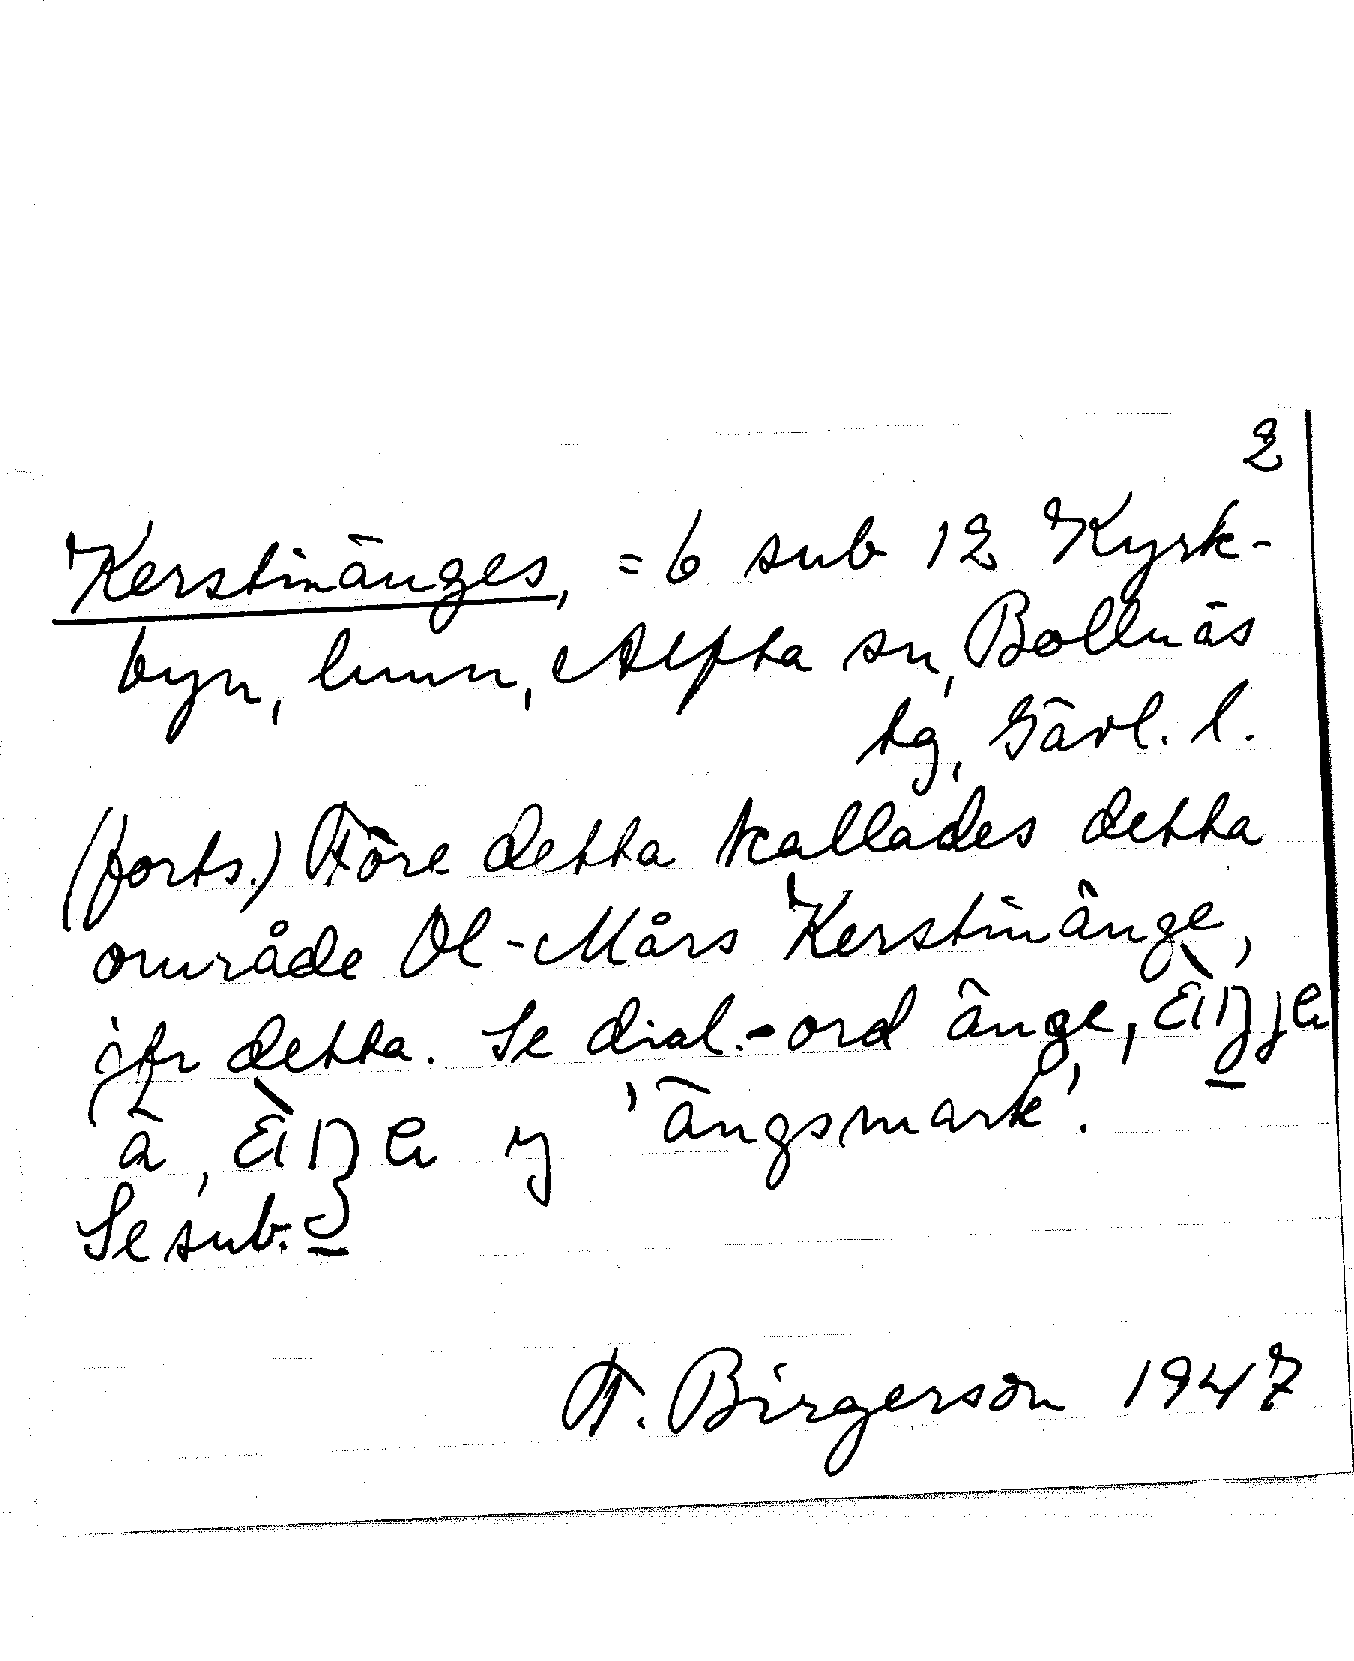 2
Kerstinänges, = 6 sub 12 Kyrk-
byn, lmm, Alfta sn, Bollnäs
tg, Gävl. l.
(forts.) Före detta kallades detta
område Ol-Mårs Kerstinänge,
jfr detta. Se dial.-ord änge,
ä, 'ängsmark'.
Se sub.
F. Birgerson 1947